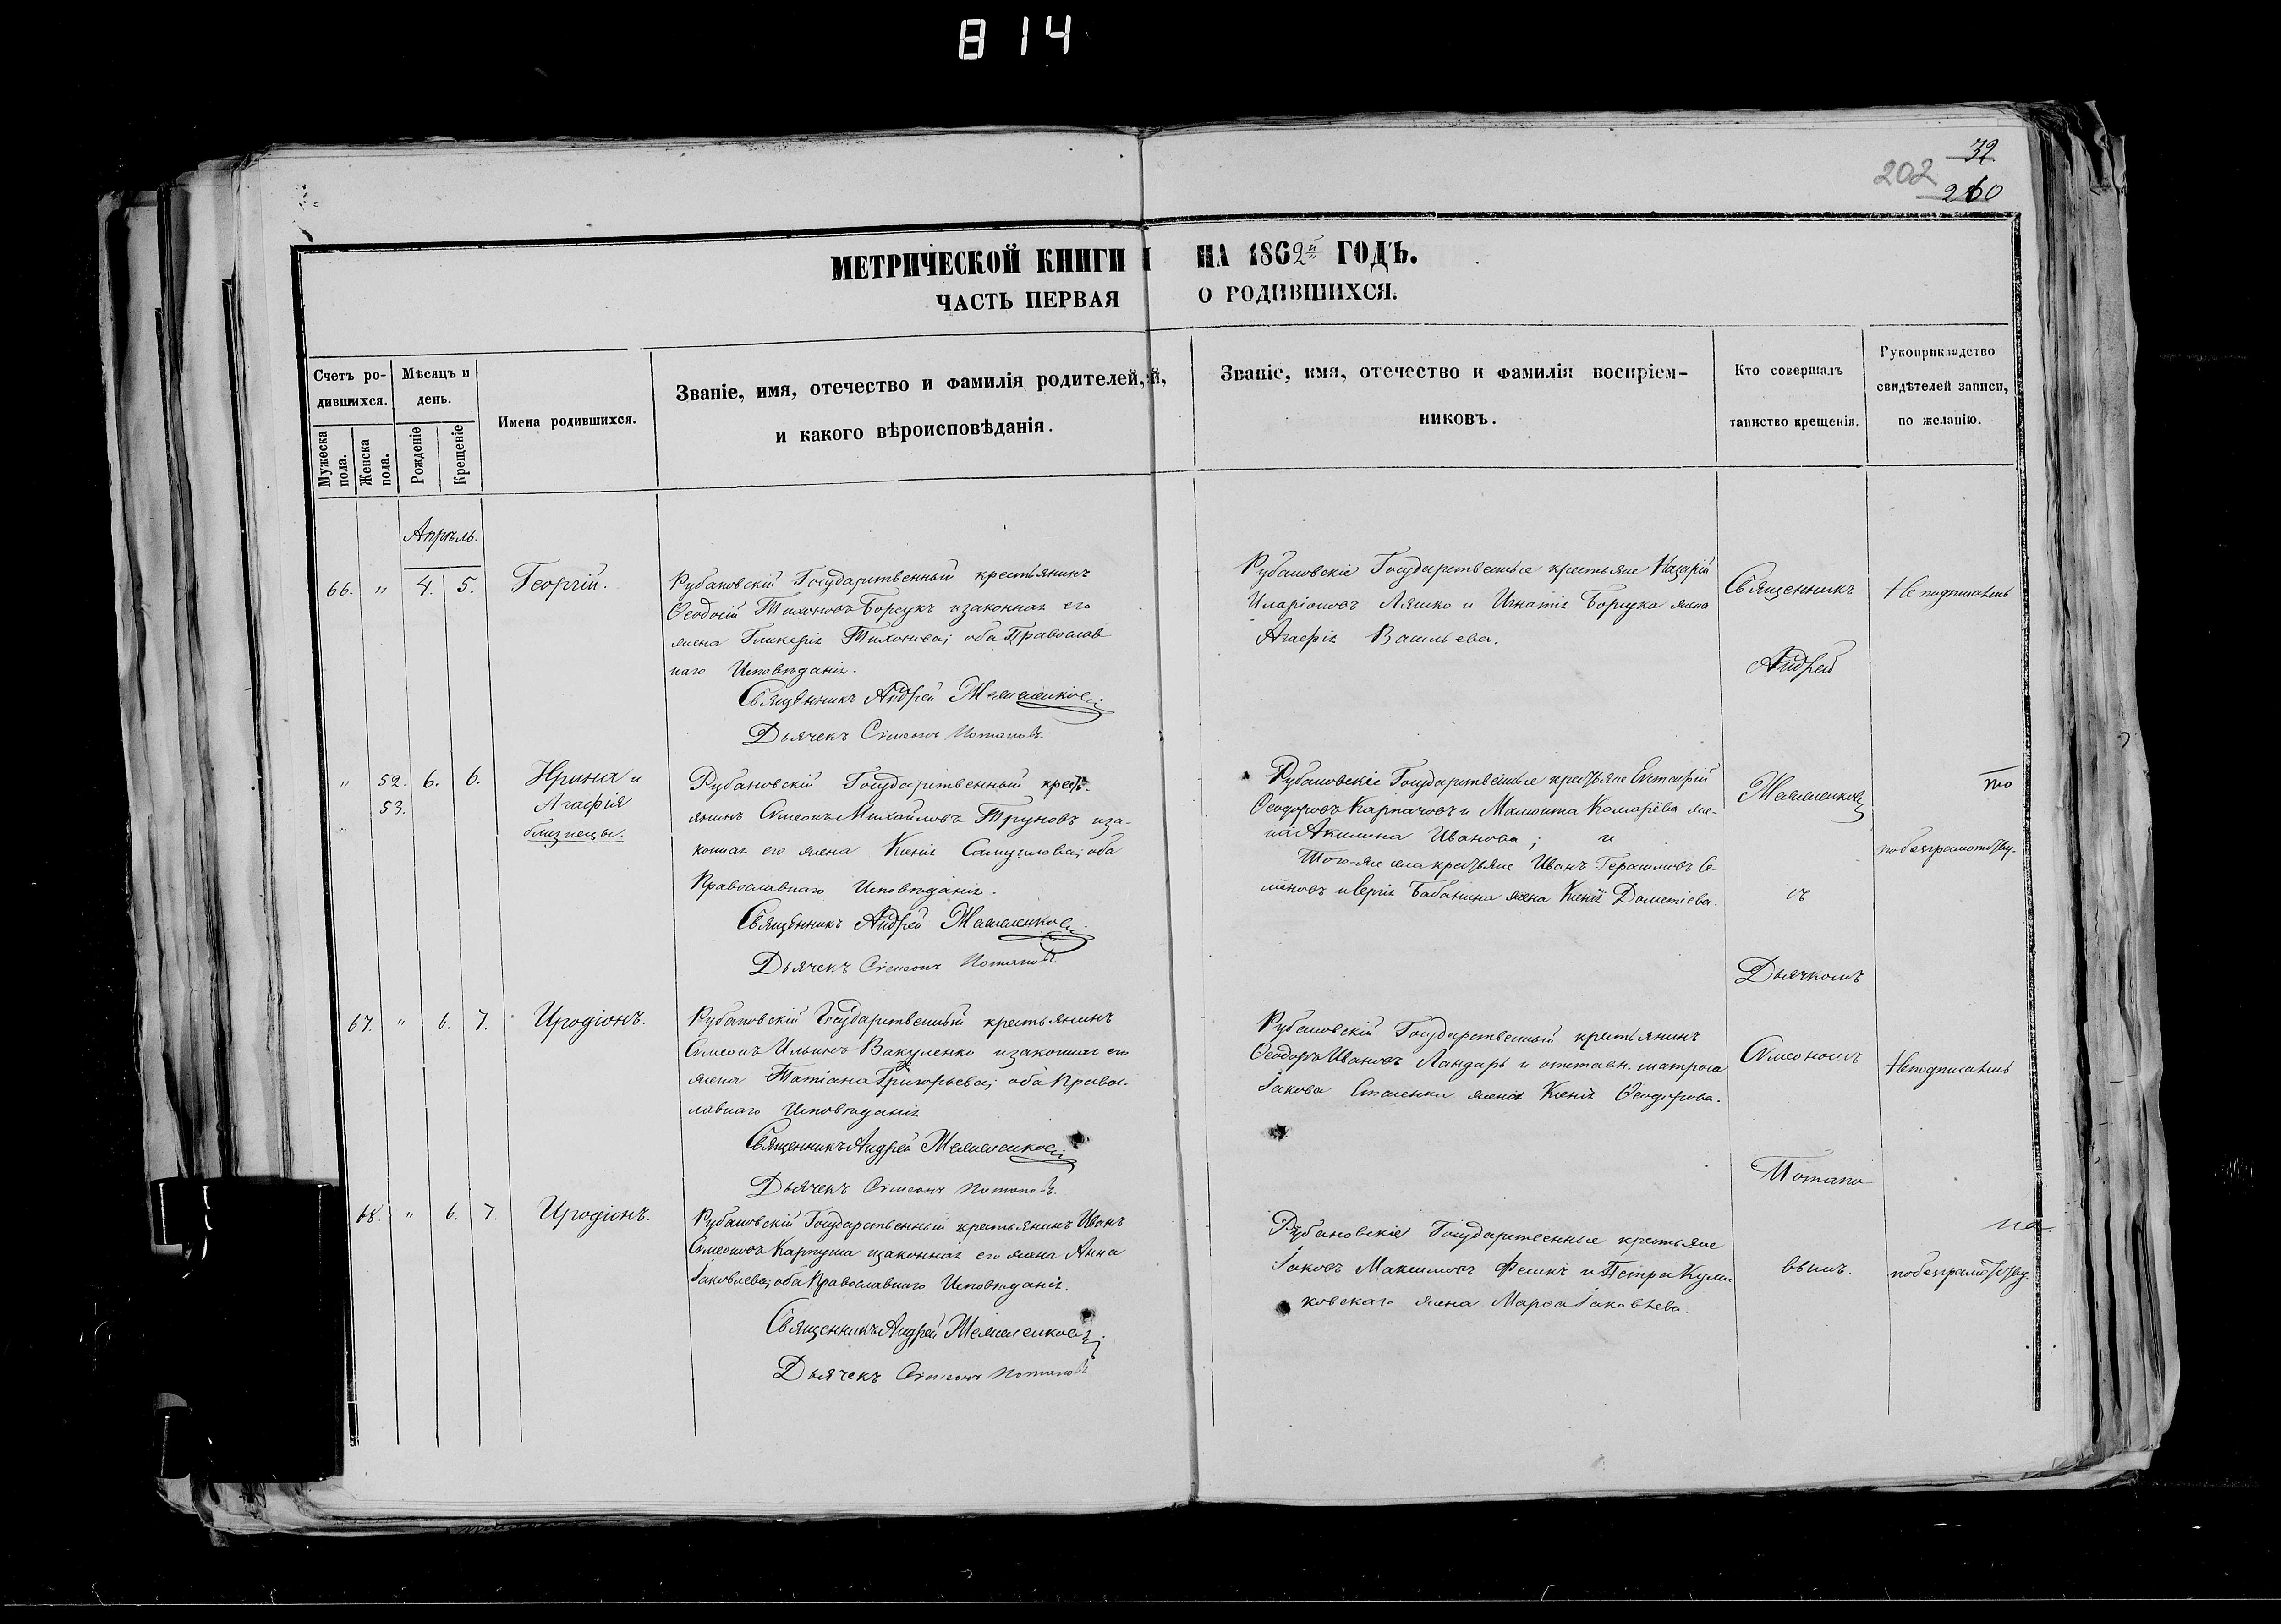 814
32
202
260
МЕТРИЧЕСКОЙ КНИГИ НА 1862й ГОДЪ.
ЧАСТЬ ПЕРВАЯ О РОДИВШИХСЯ.
Счетъ родившихся.
Мужеска пола.
Женска пола.
Мѣсяцъ и день.
Рожденіе
Крещеніе
Имена родившихся.
Званіе, имя, отечество и фамилія родителей,
и какого вѣроисповѣданія.
Званіе, имя, отечество и фамилія воспріем-
никовъ.
Кто совершалъ
таинство крещенія.
Рукоприкладство
свидѣтелей записи,
по желанію.
Апрѣль.
66. " 4. 5. Георгій.
Рубановскій Государственный крестьянинъ
Ѳеодосій Тихоновъ Борсукъ и законная его
жена Гликерія Тихонова; оба Православ
наго Исповѣданія.
Священникъ Андрей
Дьячекъ Сімеонъ Потаповъ.
Рубановскіе Государственные крестьяне Назарій
Иларіоновъ Ляшко и Игнатія Борсука жена
Агафія Васильева.
Священникъ
Андрей
" 52. 6. 6. Ирина и
53. Агафія
близнецы.
Рубановскій Государственный кресть-
янинъ Симеонъ Михайловъ Труновъ и за-
конная его жена Ксенія Самуилова; оба
Православнаго Исповѣданія.
Священникъ Андрей
Дьячекъ Сімеонъ Потаповъ.
Рубановскіе Государственные крестьяне Евстафій
Ѳеодоровъ Карпачовъ и Мамонта Комарёва же-
на Акилина Иванова; и
Того-же села крестьяне Иванъ Герасимовъ Се-
Бабанина жена Ксенія Дометіева.
по безграмотству.
съ
Дьячкомъ
67. " 6. 7. Иродіонъ.
Рубановскій Государственный крестьянинъ
Симеонъ Ильинъ Вакуленко и законная его
жена Татіана Григорьева; оба Право-
славнаго Исповѣданія
Священникъ Андрей
Дьячекъ Сімеонъ Потаповъ.
Рубановскій Государственный крестьянинъ
Ѳеодоръ Ивановъ Ландарь и отставн. матроса
Іакова жена Ксенія Ѳеодорова.
Симеономъ
Потапо
68. " 6. 7. Иродіонъ.
Рубановскій Государственный крестьянинъ Иванъ
Симеоновъ Карпуша и законная его жена Анна
Іаковлева; оба Православнаго Исповѣданія.
Священникъ Андрей
Дьячекъ Сімеонъ Потаповъ
Рубановскіе Государственные крестьяне
Іаковъ Максимовъ и Петра Кули-
ковскаго жена Марѳа Іаковлева.
вымъ.
по безграмотству.